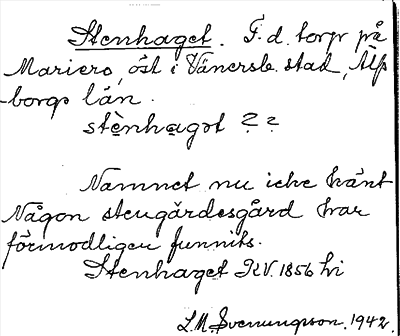 Stenhaget. F.d. torp på
Mariero, öst i Vänersb. stad, Älfs
borgs län.
stènhagət ? ?
Namnet nu icke känt
Någon stengärdesgård har
förmodligen funnits.
Stenhaget JRV. 1856 hi
L.M. Svenungson. 1942.